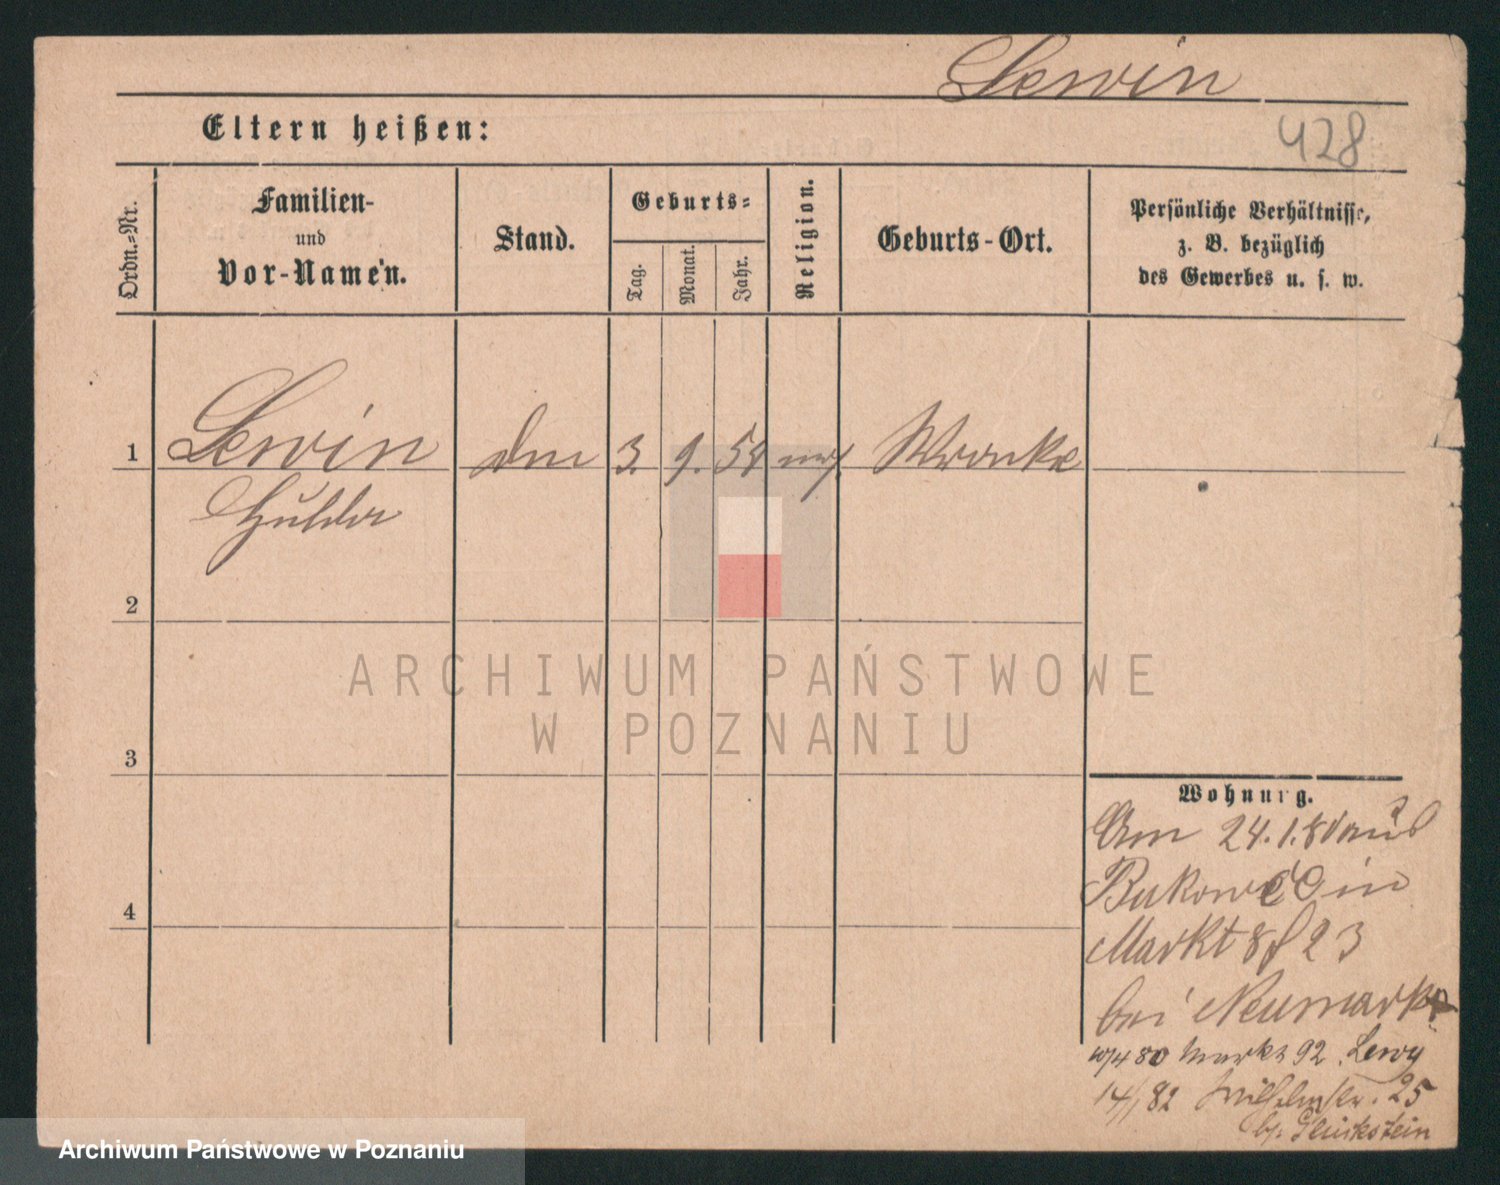 Lewin
Eltern heißen:
428
Ordn.-Nr.
Familien-
und
Vor-Namen.
Stand.
Geburts-
Tag.
Monat.
Jahr.
Religion.
Geburts-Ort.
Persönliche Verhältnisse,
z. B. bezüglich
des Gewerbes u. s. w.
1 Lewin 3. 9. 54 Wronke
Hulda
2
3
4
Wohnung.
Am 24.1.80 aus
Bukowiec in
Markt 8/ 23
bei Neumark
80 Markt 92. Levy
82 Wilhelmstr. 25
b/. Glückstein
ARCHIWUM PAŃSTWOWE
W POZNANIU
Archiwum Państwowe w Poznaniu